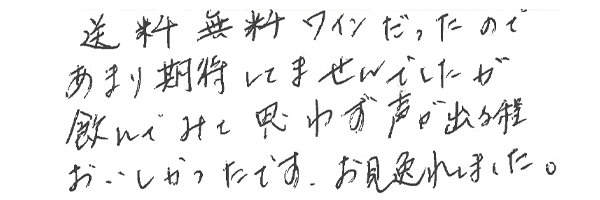 送料無料ワインだったので
あまり期待してませんでしたが
飲んでみて思わず声が出る程
おいしかったです。お見逸れしました。